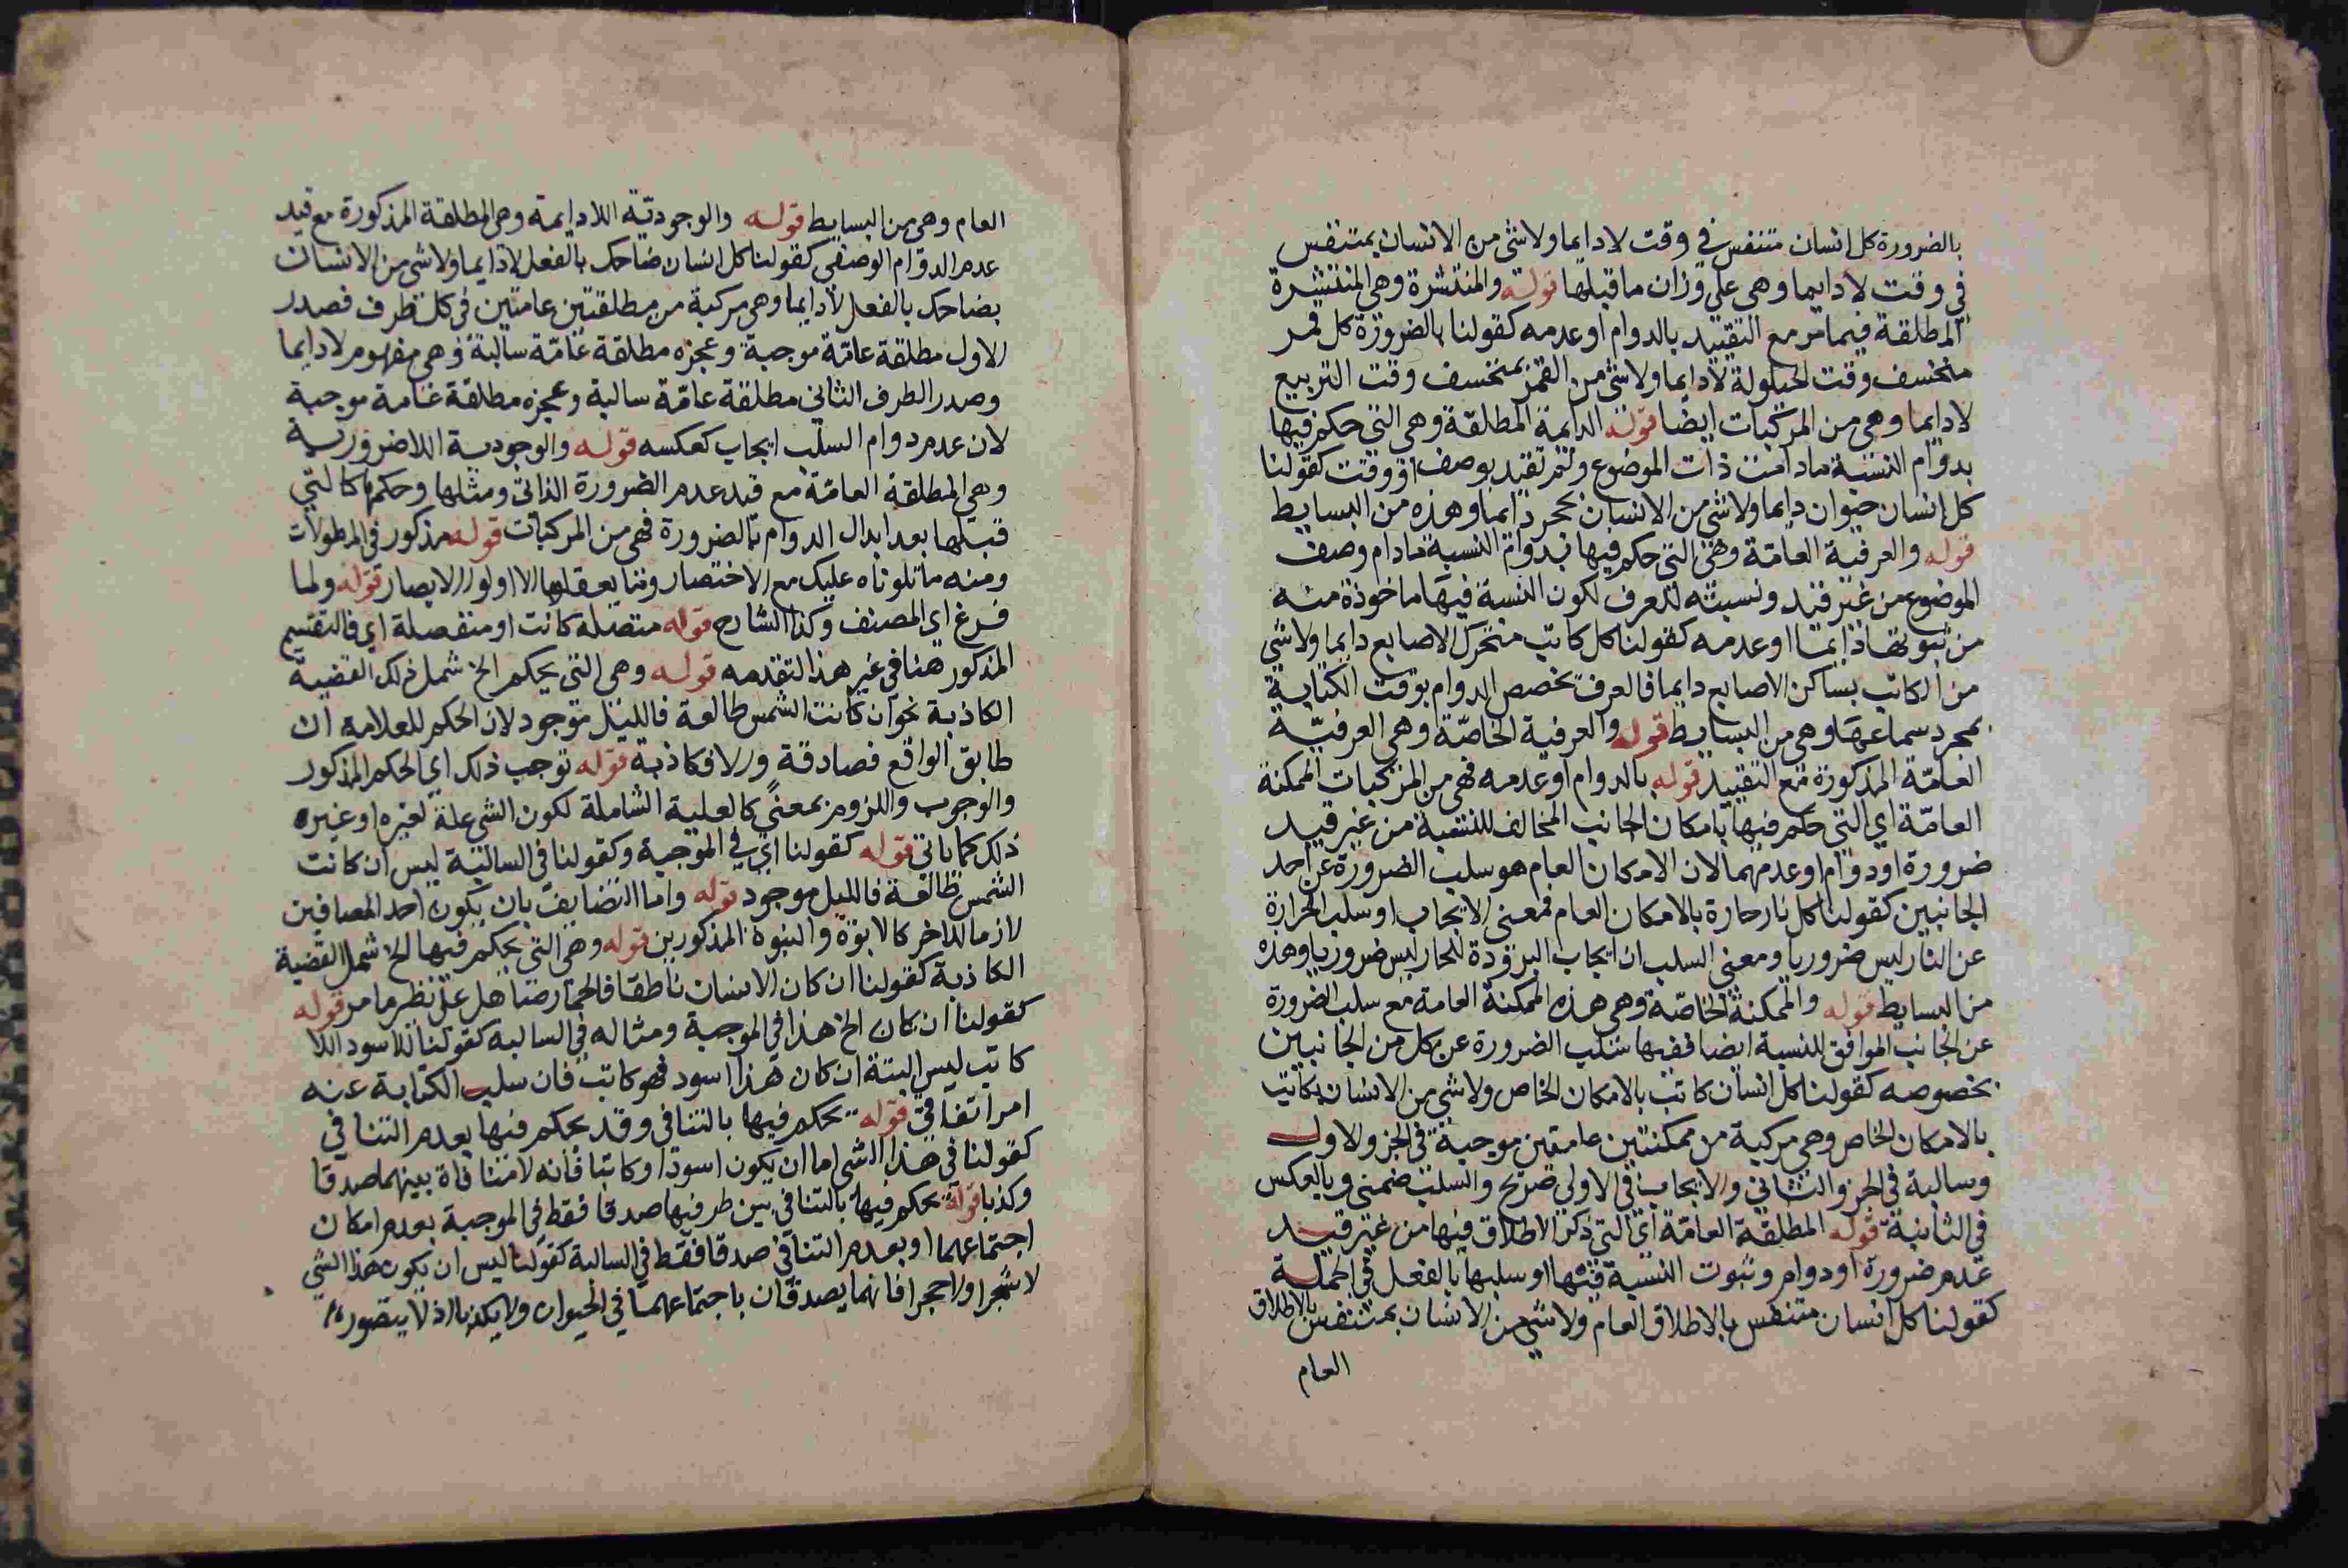 بالضرورة كل انسان متنفس في وقت لا دايما ولا شئ من الانسان بمتنفس
في وقت لا دايما وهى على وزان ما قبلها قوله والمنتشرة وهى المنتشرة
المطلقة فيما مر مع التقييد بالدوام او عدمه كقولنا بالضرورة كل قمر
منخسف وقت الحيلولة لا دايما ولا شئ من القمر بمنخسف وقت التربيع
لا دايما وهى من المركبات ايضا قوله الدايمة المطلقة وهى التى حكم فيها
بدوام النسبة مادامت ذات الموضوع ولم تقيد بوصف او وقت كقولنا
كل انسان حيوان دايما ولا شي من الانسان بحجر دايما وهذه من البسايط
قوله والعرفية العامّة وهى التى حكم فيها بدوام النسبة مادام وصف
الموضوع من غير قيد ونسبته للعرف لكون النسبة فيها ماخوذة منه
من ثبوتها دايما او عدمه كقولنا كل كاتب متحرك الاصابع دايما ولا شي
من الكاتب بساكن الاصابع دايما فالعرف تخصص الدوام بوقت الكتابة
بمجرد سماعها وهى من البسايط قوله والعرفية الخاصّة وهى العرفيّة
العامّة المذكورة مع التقييد قوله بالدوام او عدمه فهى من المركبات الممكنة
العامّة اي التى حكم فيها بامكان الجانب المخالف للنسبة من غير قيد
ضرورة او دوام او عدمهما لان الامكان العام هو سلب الضرورة عن احد
الجانبين كقولنا كل نار حارة بالامكان العام فمعنى الايجاب او سلب الحرارة
عن النار ليس ضروريا ومعنى السلب ان ايجاب البرودة للحار ليس ضروريا وهذه
من البسايط قوله والممكنة الخاصّة وهى هذه الممكنة العامة مع سلب الضرورة
عن الجانب الموافق للنسبة ايضا ففيها سلب الضرورة عن كل من الجانبين
بخصوصه كقولنا كل انسان كاتب بالامكان الخاص ولا شي من الانسان بكاتب
بالامكان الخاص وهى مركبة من ممكنتين عامتين موجبة فى الجزو الاول
وسالبة فى الجزو الثاني والايجاب فى الاولى صريح والسلب ضمنى وبالعكس
فى الثانية قوله المطلقة العامّة اي التى ذكر الاطلاق فيها من غير قيد
عدم ضرورة او دوام وثبوت النسبة فيها او سلبها بالفعل فى الجملة
كقولنا كل انسان متنفس بالاطلاق العام ولا شي من الانسان بمتنفس بالاطلاق
العام
العام وهى من البسايط قوله والوجوديّة اللا دايمة وهى المطلقة المذكورة مع قيد
عدم الدوام الوصفي كقولنا كل انسان ضاحك بالفعل لا دايما ولا شي من الانسان
بضاحك بالفعل لا دايما وهى مركبة من مطلقتين عامتين فى كل طرف فصدر
الاول مطلقة عامّة موجبة وعجزه مطلقة عامّة سالبة وهى مفهوم لا دايما
وصدر الطرف الثاني مطلقة عامّة سالبة وعجزه مطلقة عامة موجبة
لان عدم دوام السلب ايجاب كعكسه قوله والوجودية اللا ضرورية
وهى المطلقة العامّة مع قيد عدم الضرورة الذاتي ومثلها وحكمها كالتي
قبلها بعد ابدال الدوام بالضرورة فهى من المركبات قوله مذكور في المطولات
ومنه ما تلوناه عليك مع الاختصار وما يعقلها الا اولو الابصار قوله ولما
فرغ اي المصنف وكذا الشارح قوله متصلة كانت او منفصلة اي فالتقسيم
المذكور هنا فى غير هذا التقدمه قوله وهى التى يحكم الخ شمل ذلك القضية
الكاذبة نحو ان كانت الشمس طالعة فالليل موجود لان الحكم للعلامه ان
طابق الواقع فصادقة والا فكاذبة قوله توجب ذلك اي الحكم المذكور
والوجوب واللزوم بمعنى كالعلية الشاملة لكون الشي علة لغيره او غيره
ذلك كما ياتي قوله كقولنا اي في الموجبة وكقولنا في السالبة ليس ان كانت
الشمس طالعة فالليل موجود قوله واما التضايف بان يكون احد المضافين
لازما للاخر كالابوة والبنوة المذكورين قوله وهى التي يحكم فيها الخ شمل القضية
الكاذبة كقولنا ان كان الانسان ناطقا فالحمار صاهل على نظر ما مر قوله
كقولنا ان كان الخ هذا في الموجبة ومثاله فى السالبة كقولنا للاسود اللا
كاتب ليس البتة ان كان هذا اسود فهو كاتب فان سلب الكتابة عنه
امر اتفاقي قوله يحكم فيها بالتنافى وقد يحكم فيها بعدم التنافي
كقولنا في هذا الشي اما ان يكون اسودا او كاتبا فانه لا منافاة بينهما صدقا
وكذبا قوله يحكم فيها بالتنافي بين طرفيها صدقا فقط في الموجبة بعدم امكان
اجتماعهما او بعدم التنافي صدقا فقط في السالبة كقولنا ليس ان يكون هذا الشي
لا شجرا ولا حجرا فانهما يصدقان باجتماعهما في الحيوان ولا يكذبا اذ لا يتصور